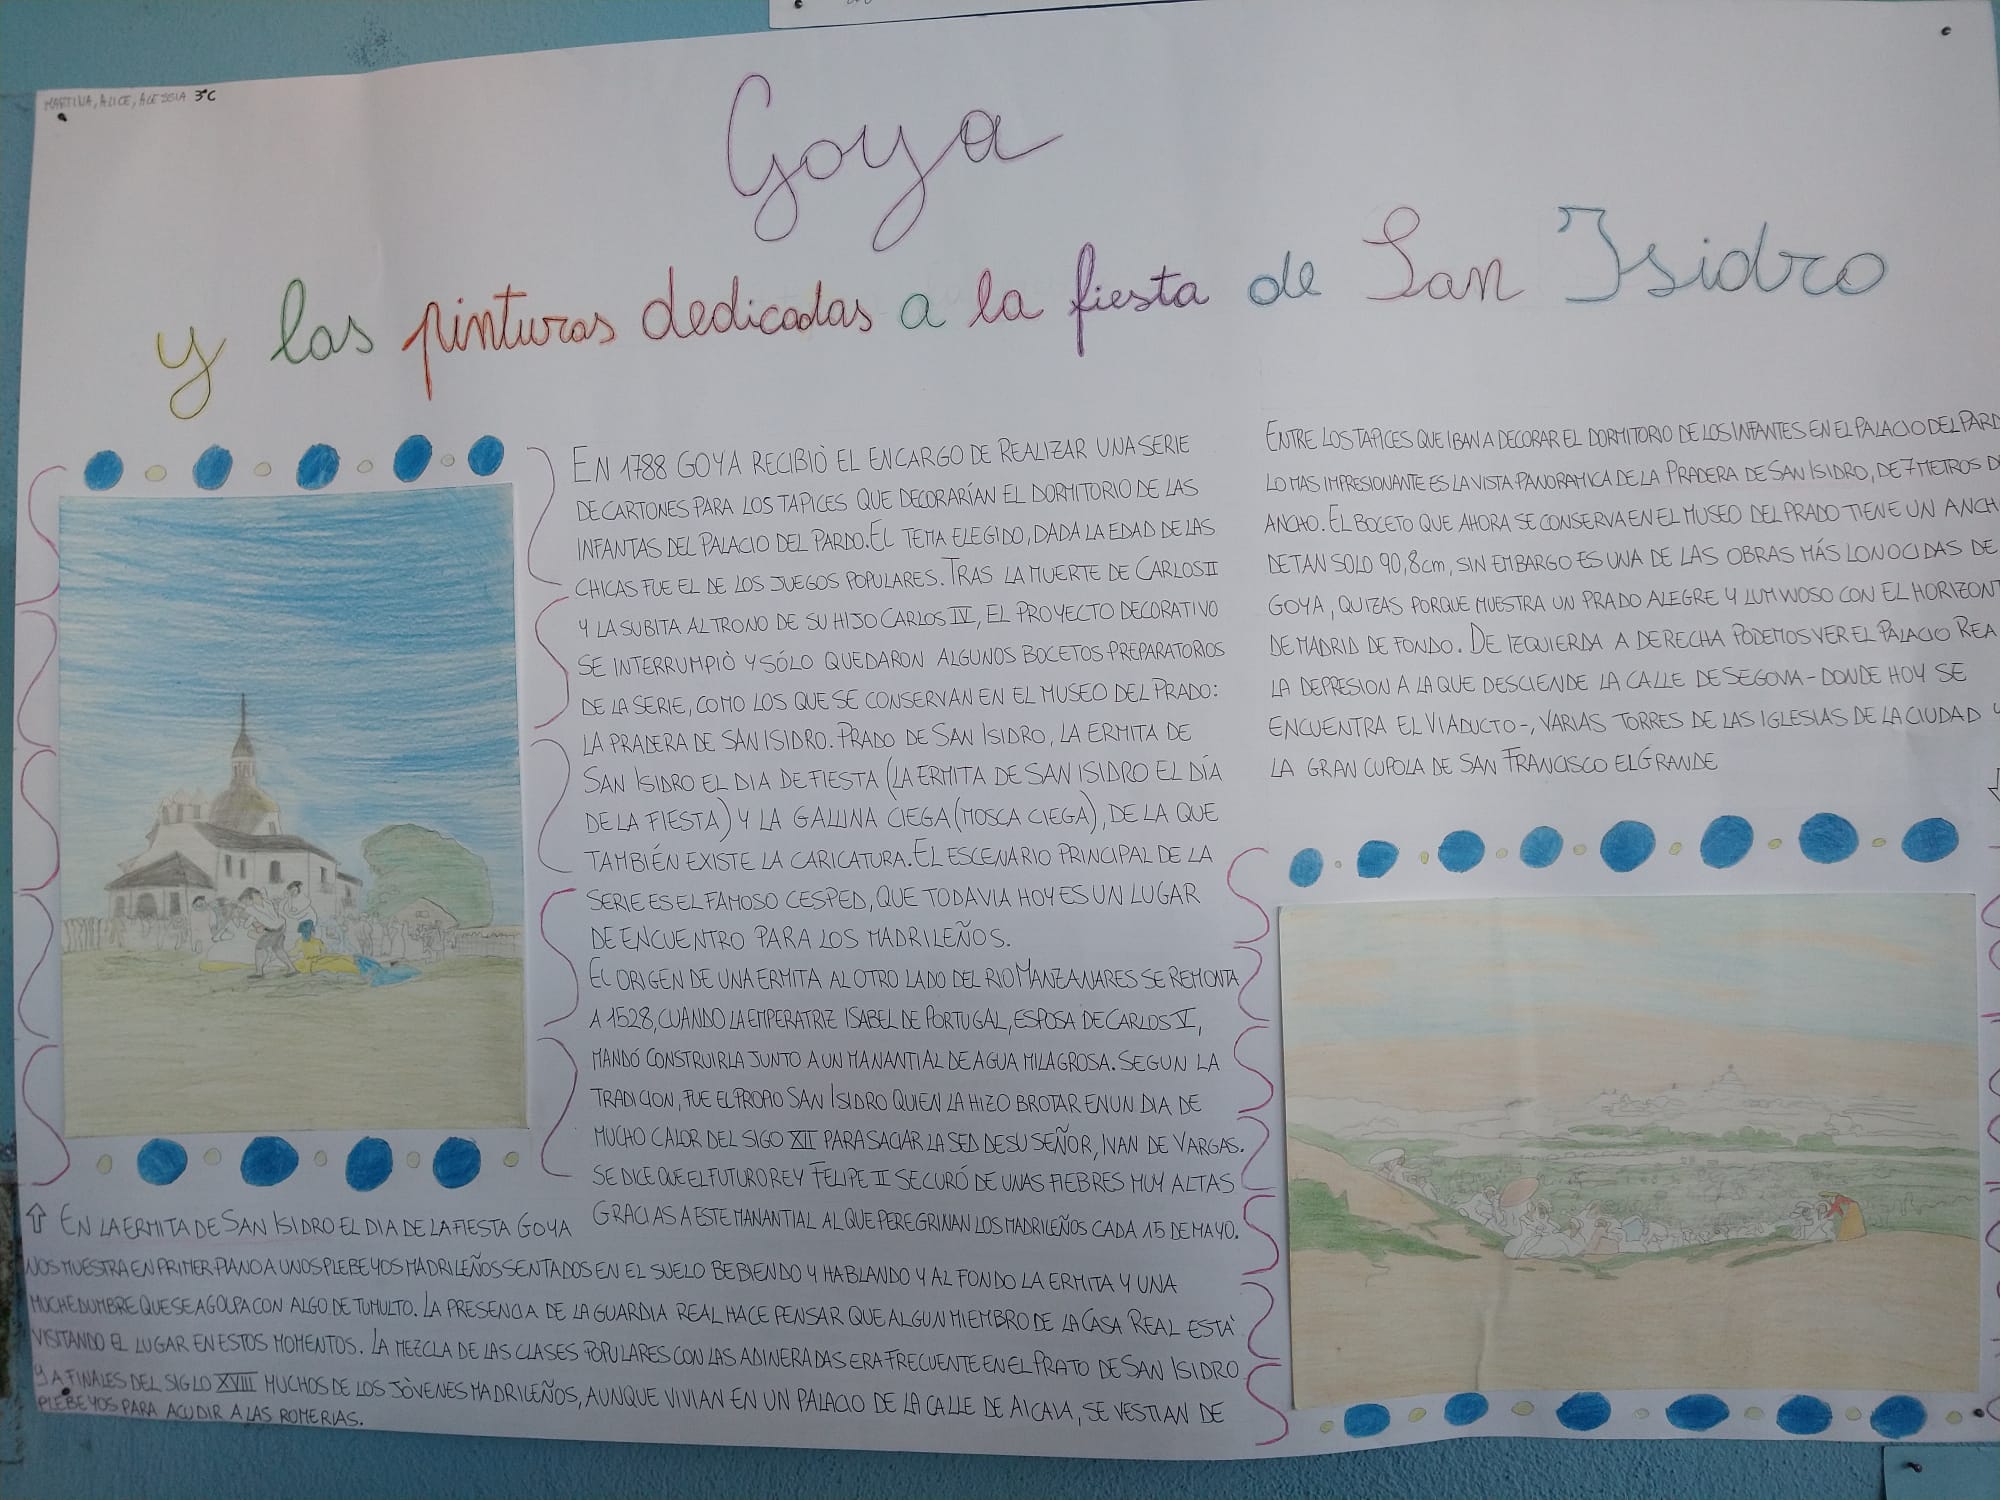 MARTINA, ALICE, ALESSIA 3°C
Goya
y las pinturas dedicadas a la fiesta de San Isidro
EN 1788 GOYA RECIBIÒ EL ENCARGO DE REALIZAR UNA SERIE
DE CARTONES PARA LOS TAPICES QUE DECORARÍAN EL DORMITORIO DE LAS
INFANTAS DEL PALACIO DEL PARDO. EL TEMA ELEGIDO, DADA LA EDAD DE LAS
CHICAS FUE EL DE LOS JUEGOS POPULARES. TRAS LA MUERTE DE CARLOS II
Y LA SUBITA AL TRONO DE SU HIJO CARLOS IV, EL PROYECTO DECORATIVO
SE INTERRUMPIÒ Y SÓLO QUEDARON ALGUNOS BOCETOS PREPARATORIOS
DE LA SERIE, COMO LOS QUE SE CONSERVAN EN EL MUSEO DEL PRADO:
LA PRADERA DE SAN ISIDRO. PRADO DE SAN ISIDRO, LA ERMITA DE
SAN ISIDRO EL DIA DE FIESTA (LA ERMITA DE SAN ISIDRO EL DÍA
DE LA FIESTA) Y LA GALLINA CIEGA (MOSCA CIEGA), DE LA QUE
TAMBIÉN EXISTE LA CARICATURA. EL ESCENARIO PRINCIPAL DE LA
SERIE ES EL FAMOSO CESPED, QUE TODAVIA HOY ES UN LUGAR
DE ENCUENTRO PARA LOS MADRILEÑOS.
EL ORIGEN DE UNA ERMITA AL OTRO LADO DEL RIO MANZANARES SE REMONTA
A 1528, CUANDO LA EMPERATRIZ ISABEL DE PORTUGAL, ESPOSA DE CARLOS V,
MANDÓ CONSTRUIRLA JUNTO A UN MANANTIAL DE AGUA MILAGROSA. SEGUN LA
TRADICION, FUE EL PROPIO SAN ISIDRO QUIEN LA HIZO BROTAR EN UN DIA DE
MUCHO CALOR DEL SIGO XII PARA SACIAR LA SED DE SU SEÑOR, IVAN DE VARGAS.
SE DICE QUE EL FUTURO REY FELIPE II SE CURÓ DE UNAS FIEBRES MUY ALTAS
GRACIAS A ESTE MANANTIAL AL QUE PEREGRINAN LOS MADRILEÑOS CADA 15 DE MAYO.
↑ EN LA ERMITA DE SAN ISIDRO EL DIA DE LA FIESTA GOYA
NOS MUESTRA EN PRIMER PIANO A UNOS PLEBEYOS MADRILEÑOS SENTADOS EN EL SUELO BEBIENDO Y HABLANDO Y AL FONDO LA ERMITA Y UNA
MUCHEDUMBRE QUE SE AGOLPA CON ALGO DE TUMULTO. LA PRESENCIA DE LA GUARDIA REAL HACE PENSAR QUE ALGUN MIEMBRO DE LA CASA REAL ESTA'
VISITANDO EL LUGAR EN ESTOS MOMENTOS. LA MEZCLA DE LAS CLASES POPULARES CON LAS ADINERADAS ERA FRECUENTE EN EL PRATO DE SAN ISIDRO
Y A FINALES DEL SIGLO XVIII MUCHOS DE LOS JÒVENES MADRILEÑOS, AUNQUE VIVIAN EN UN PALACIO DE LA CALLE DE AICAVA, SE VESTIAN DE
PLEBEYOS PARA ACUDIR A LAS ROMERIAS.
ENTRE LOS TAPICES QUE IBAN A DECORAR EL DORMITORIO DE LOS INFANTES EN EL PALACIO DEL PARD
LO MAS IMPRESIONANTE ES LA VISTA PANORAMICA DE LA PRADERA DE SAN ISIDRO, DE 7 METROS D
ANCHO. EL BOCETO QUE AHORA SE CONSERVA EN EL MUSEO DEL PRADO TIENE UN ANCH
DE TAN SOLO 90,8cm, SIN EMBARGO ES UNA DE LAS OBRAS MÁS CONOCIDAS DE
GOYA, QUIZAS PORQUE MUESTRA UN PRADO ALEGRE Y LUMINOSO CON EL HORIZONT
DE MADRID DE FONDO. DE IZQUIERDA A DERECHA PODEMOS VER EL PALACIO REA
LA DEPRESION A LA QUE DESCIENDE LA CALLE DE SEGOVIA - DONDE HOY SE
ENCUENTRA EL VIADUCTO-, VARIAS TORRES DE LAS IGLESIAS DE LA CIUDAD Y
LA GRAN CUPOLA DE SAN FRANCISCO EL GRANDE